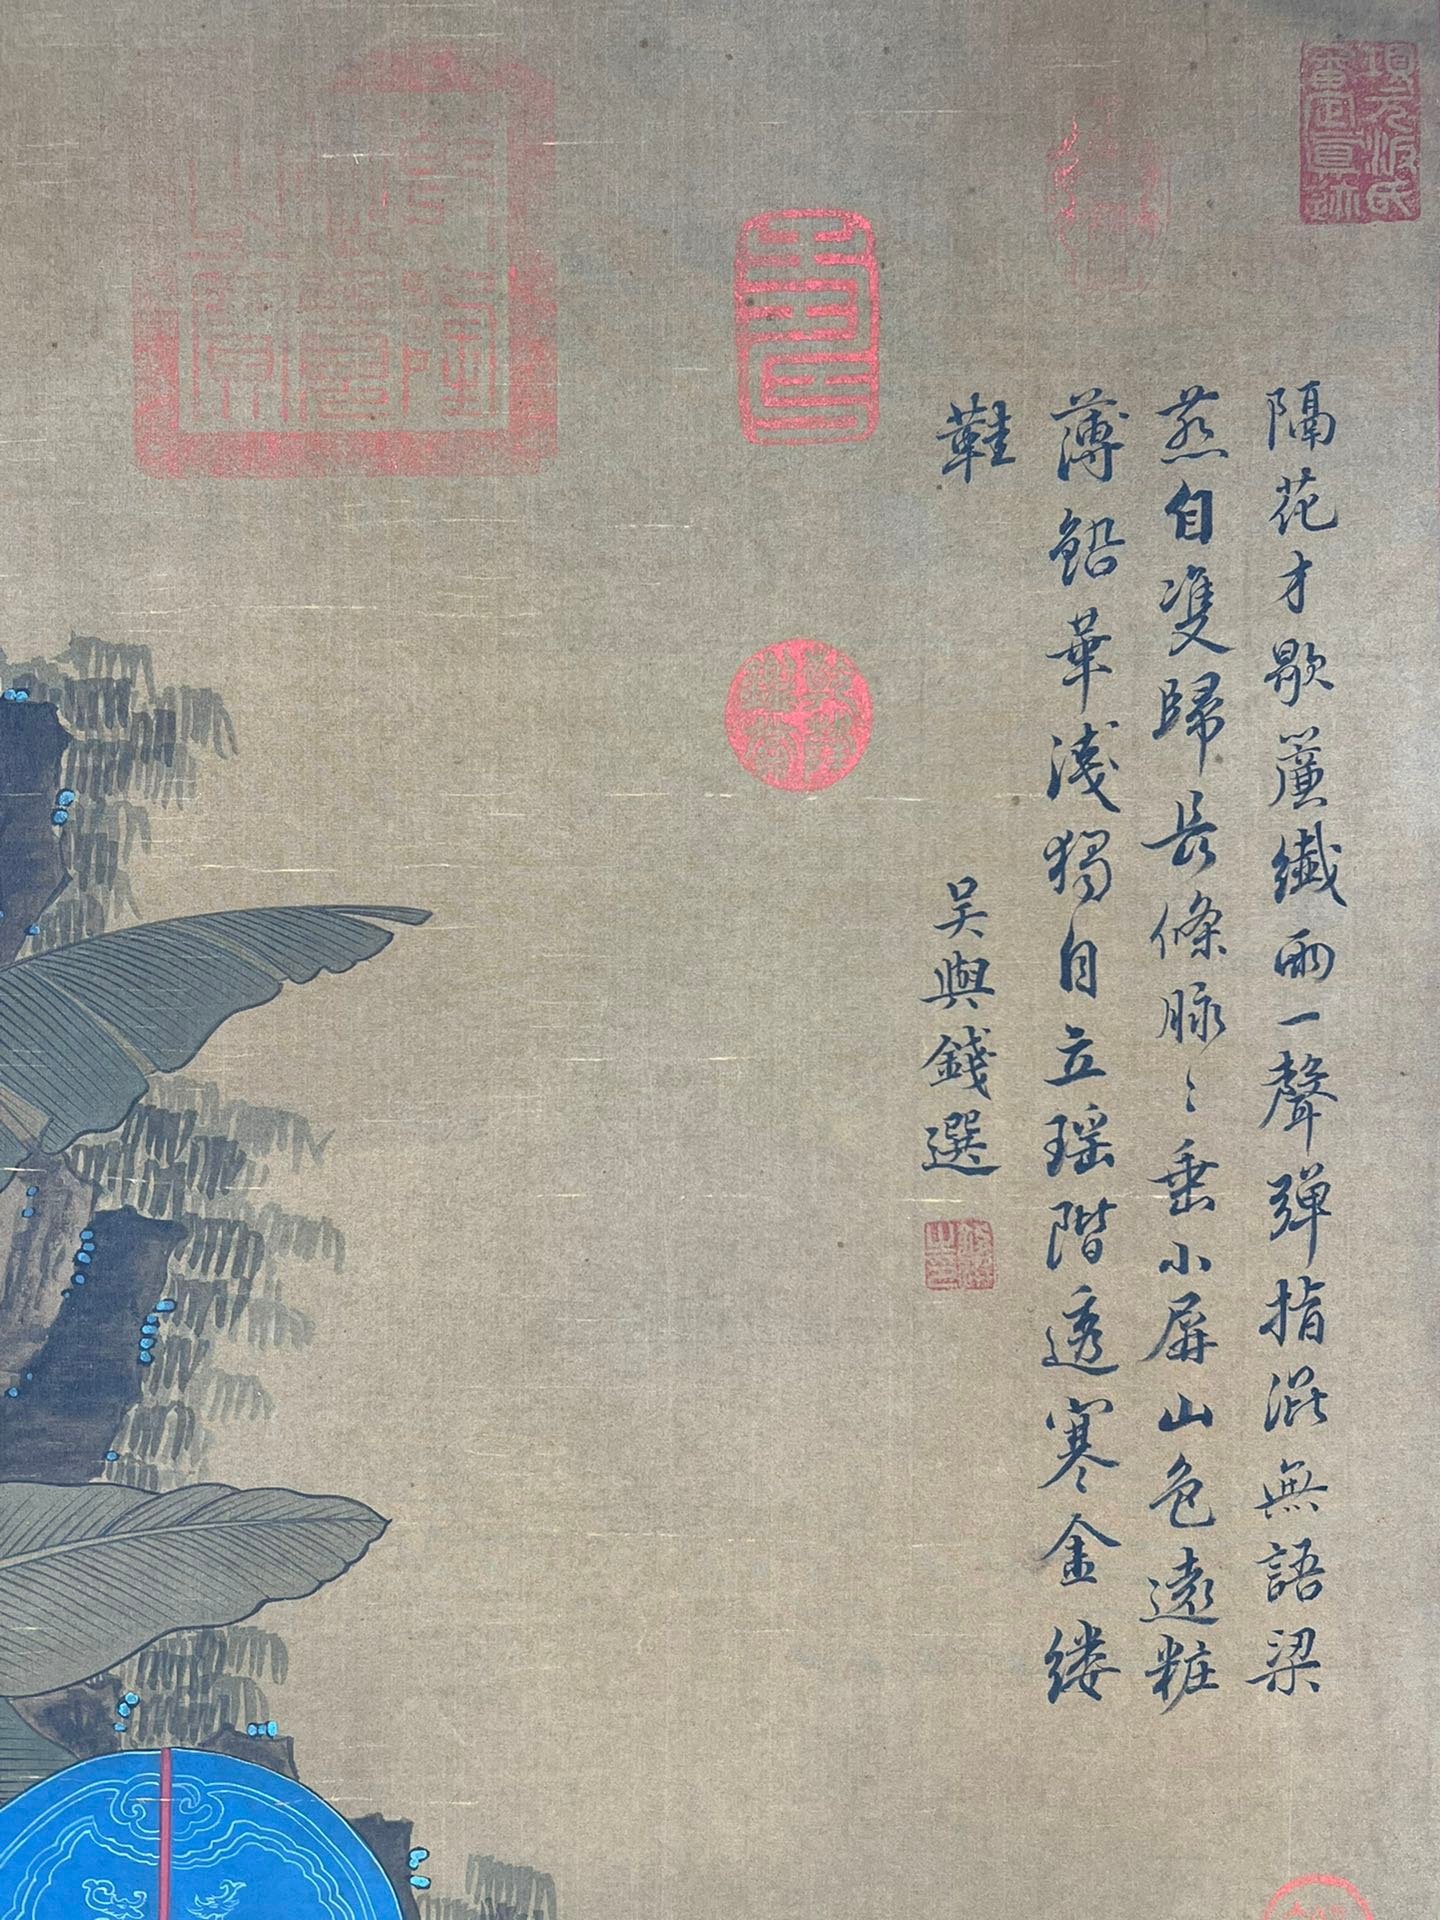 隔花才歇簾纖雨一聲彈指混無語梁
燕自雙歸長條脉〻垂小屏山色遠粧
薄鉛華淺獨自立瑶階透寒金缕
鞋
吳興錢選
項元汴氏審定真迹
乾隆鑑賞